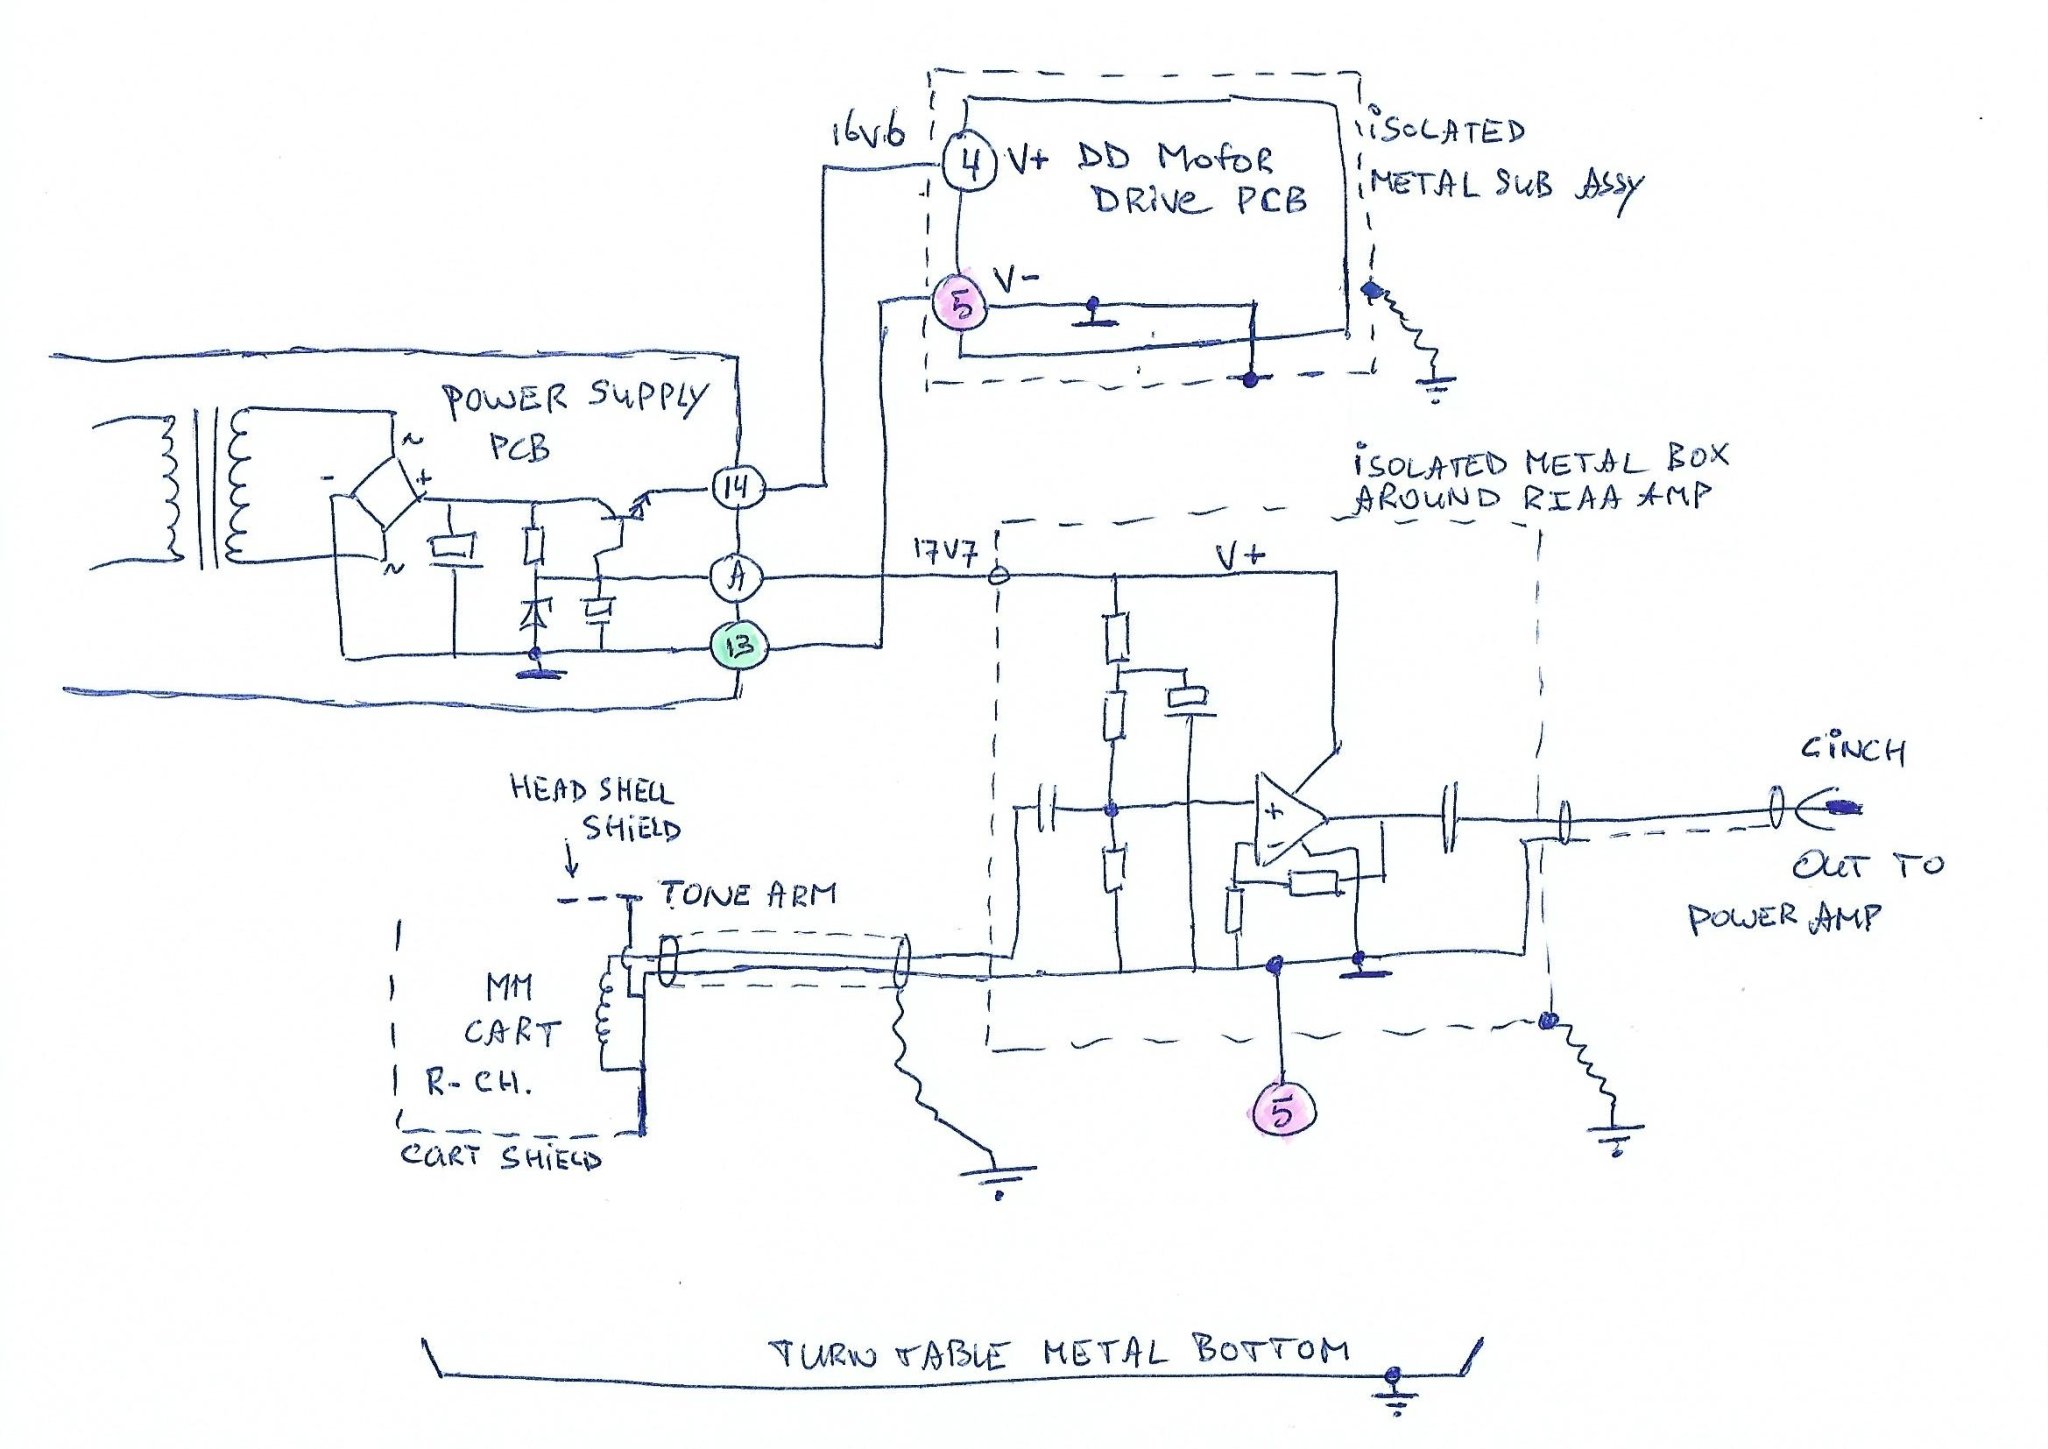 16V.6
4
V+
DD MOTOR
DRIVE PCB
ISOLATED
METAL SUB ASSY
5
V-
POWER SUPPLY
PCB
~
-
+
~
14
A
13
17V7
V+
ISOLATED METAL BOX
AROUND RIAA AMP
+
-
CINCH
OUT TO
POWER AMP
HEAD SHELL
SHIELD
TONE ARM
MM
CART
R-CH.
CART SHIELD
5
TURN TABLE METAL BOTTOM